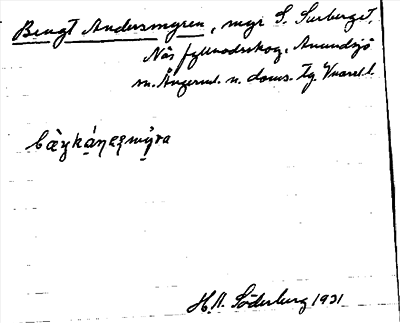 Bengt Andersmyren, myr S. Surberget,
Näs fyllnadsskog. Anundsjö
m. Ångerml. n. doms. tg. Vnorrl. l.
bàŋkánẹṣmy̆ra
H.A. Söderberg 1931